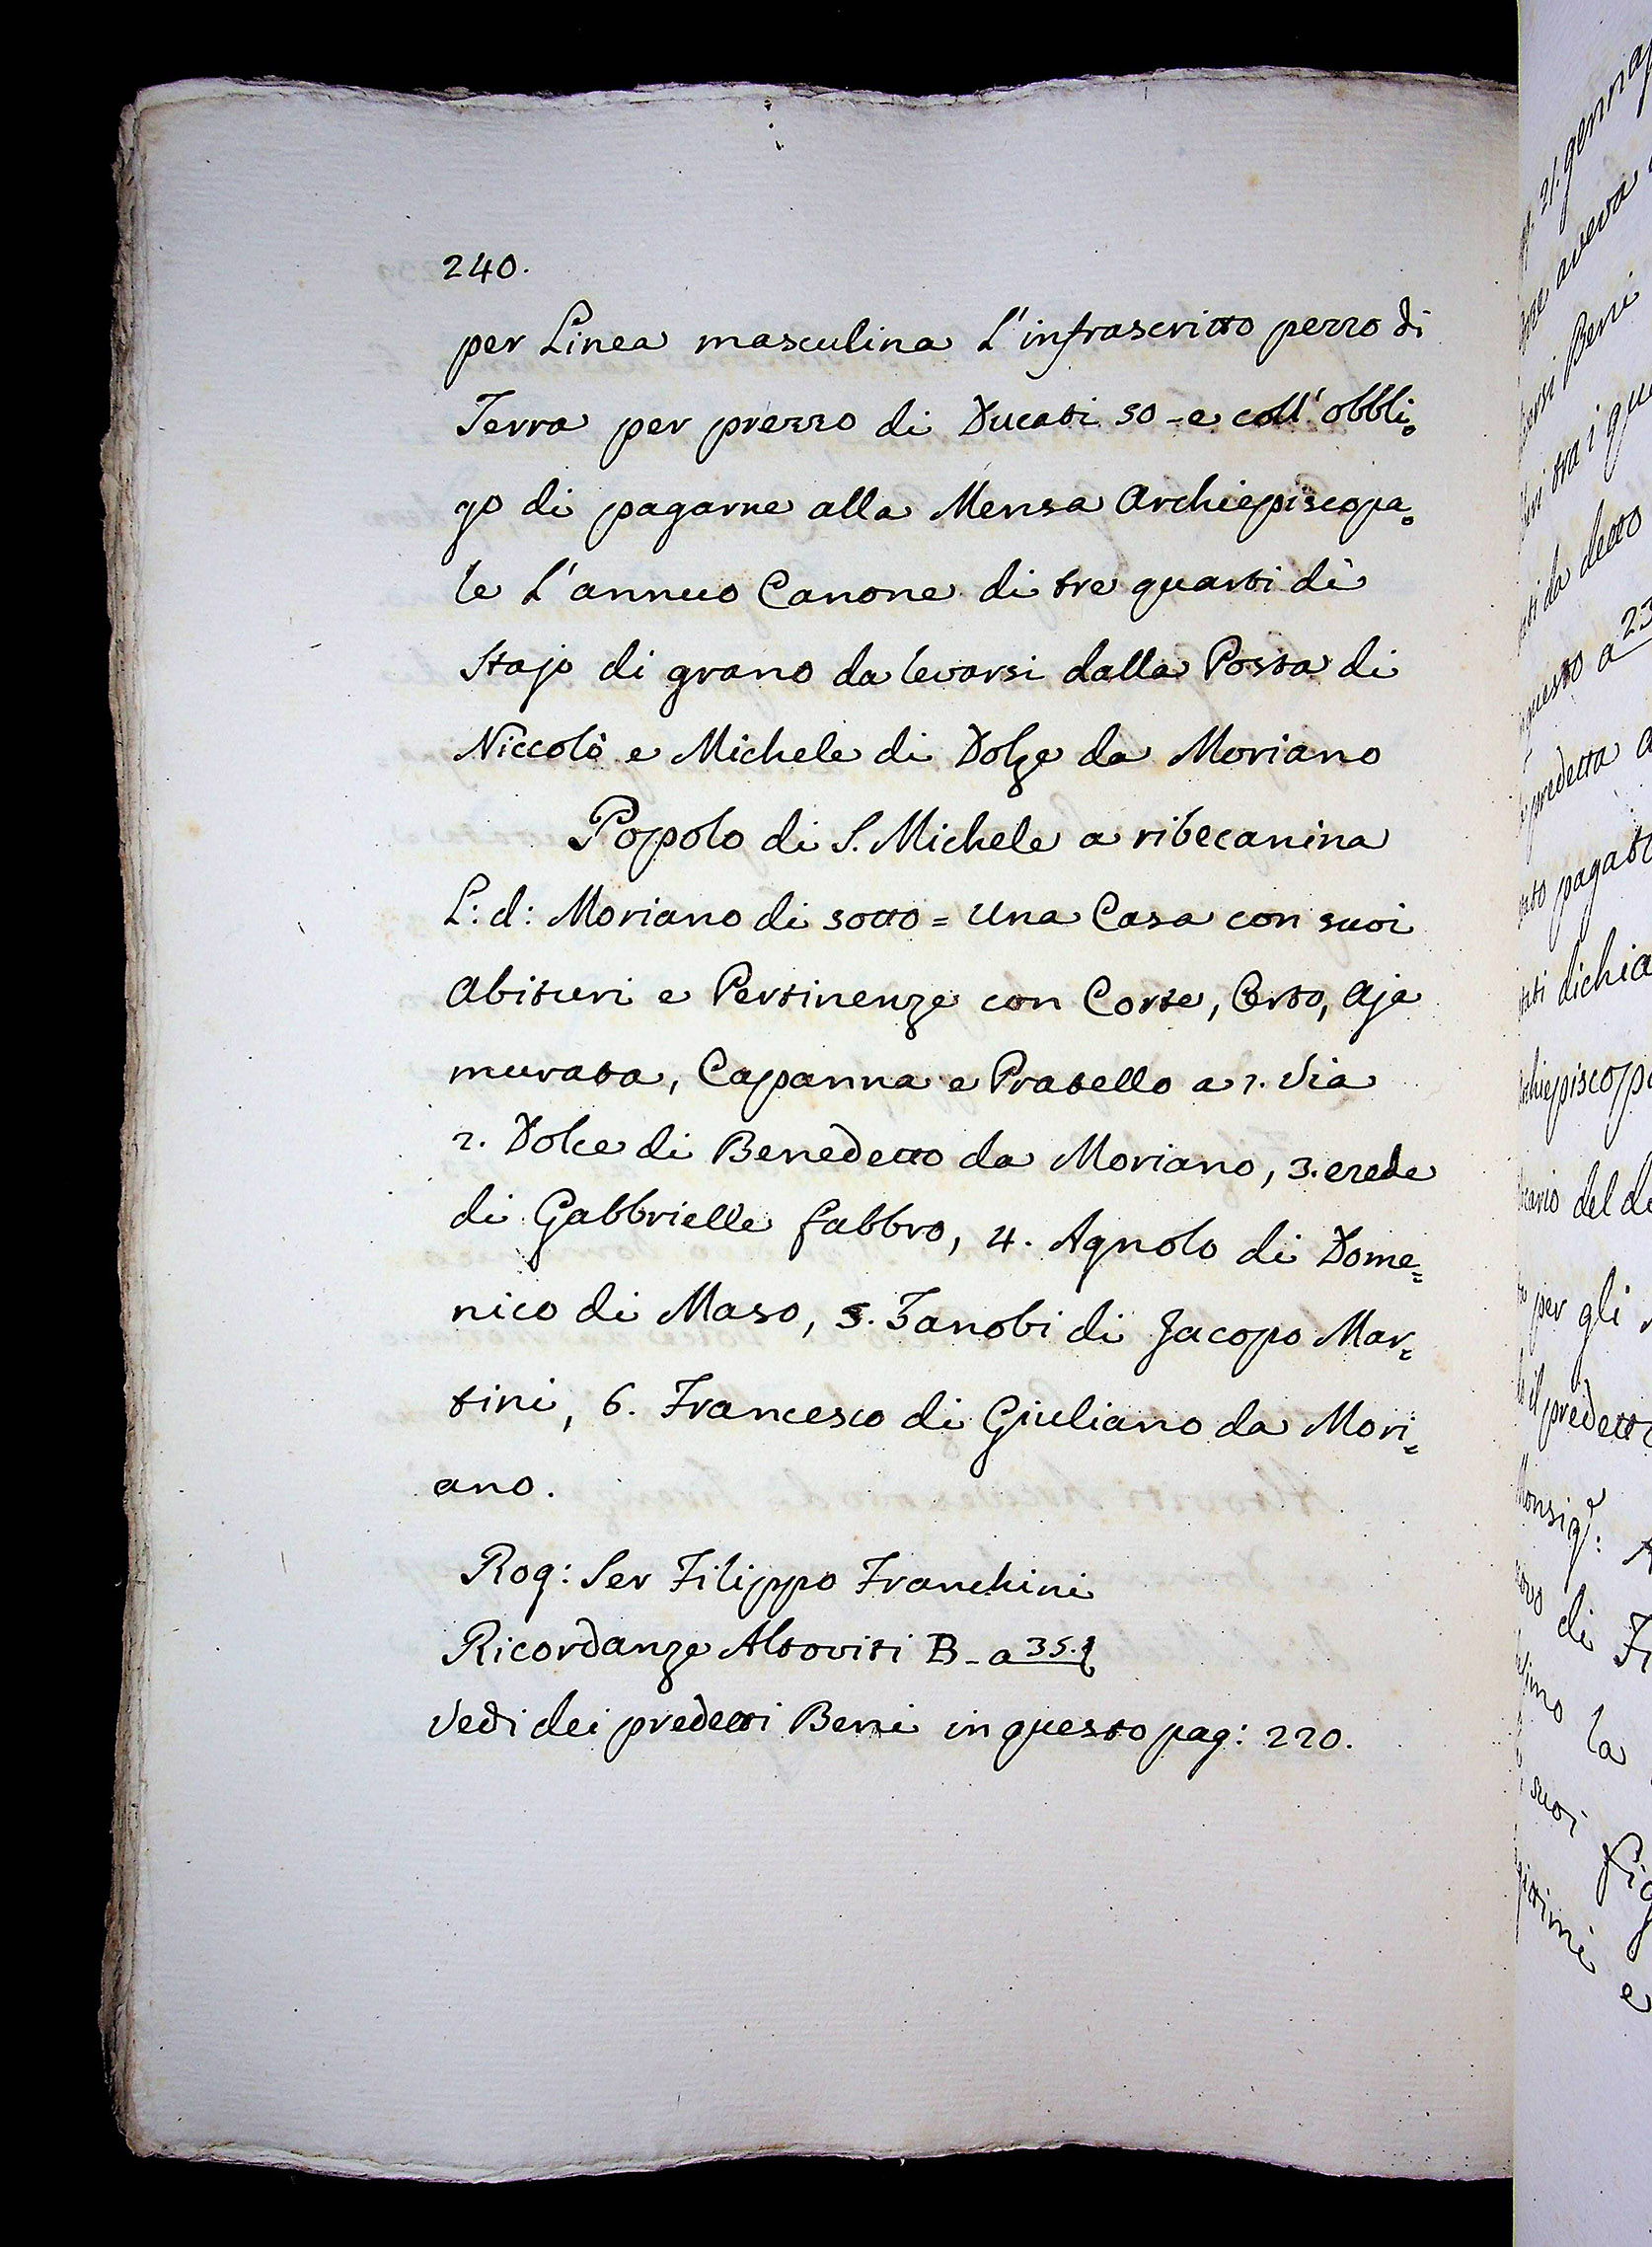 240.
per Linea masculina L'infrascritto pezzo di
Terra per prezzo di Ducati 50 - e coll' obbli=
go di pagarne alla Mensa Archiepiscopa=
le L'annuo Canone di tre quarti di
Stajo di grano da levarsi dalla Posta di
Niccolò e Michele di Dolze da Moriano
Popolo di S. Michele a ribecanina
L: d: Moriano di sotto = Una Casa con suoi
Abituri e Pertinenze con Corte, Orto, Aja
murata, Capanna e Pratello a 1. Via
2. Dolce di Benedetto da Moriano, 3. erede
di Gabbrielle fabbro, 4. Agnolo di Dome=
nico di Maso, 5. Zanobi di Jacopo Mar=
tini, 6. Francesco di Giuliano da Mori=
ano.
Rog: Ser Filippo Franchini
Ricordanze Altoviti B - a 35.
Vedi dei predetti Beni in questo pag: 220.
21. gennaj
aveva
Beni
tra i qu
da detto
a 23
predetta
pagat
dichia
del d
per gli
il predett
di Fi
la
suoi Fig
e